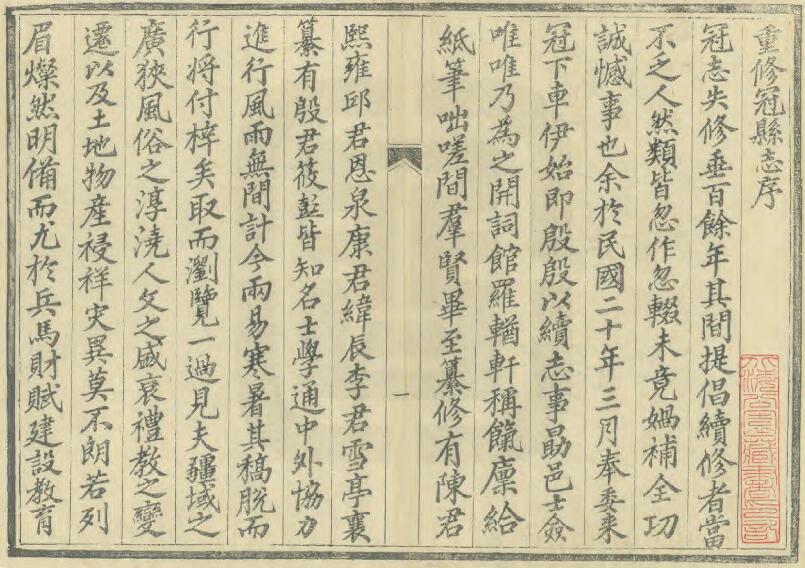 重修冠縣志序
冠志失修垂百餘年其間提倡續修者當
不乏之人然類皆忽作忽輟未竟媧補全功
誠憾事也余於民國二十年三月奉委來
冠下車伊始即殷殷以續志事勗邑士僉
唯唯乃為之開詞館羅輶軒稱餼廩給
紙筆咄嗟間羣賢畢至纂修有陳君
一
熙雍邱君恩泉康君緯辰李君雪亭襄
纂有殷君筱彭皆知名士學通中外協力
進行風雨無間計今兩易寒暑其稿脫而
行將付梓矣取而瀏覽一過見夫疆域之
廣狹風俗之淳澆人文之盛衰禮教之變
遷以及土地物產祲祥災異莫不朗若列
眉燦然明備而尤於兵馬財賦建設教育